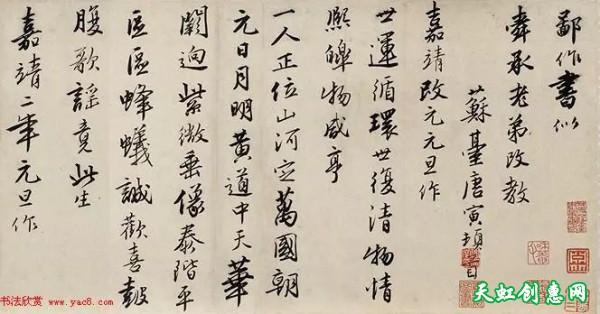 鄙作書似
舜承老弟改教
蘇臺唐寅頓首
嘉靖改元元旦作
世運循環世復清物情
熙皞物咸亨
一人正位山河定萬國朝
元日月明黃道中天華
闕迥紫微垂像泰階平
區區蜂蟻誠歡喜皷
腹歌謠竟此生
嘉靖二年元旦作
书法欣赏 www.yac8.com
天虹创惠网